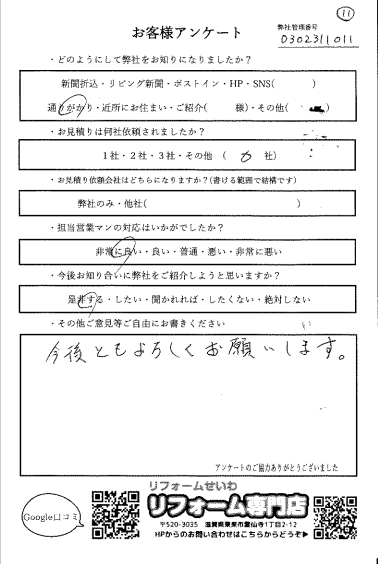 11
お客様アンケート
弊社管理番号
0302311011
・どのようにして弊社をお知りになりましたか？
新聞折込・リビング新聞・ポストイン・HP・SNS( )
通りがかり・近所にお住まい・ご紹介( 様)・その他( )
・お見積りは何社依頼されましたか？
１社・２社・３社・その他 ( 社)
・お見積り依頼会社はどちらになりますか？(書ける範囲で結構です)
弊社のみ・他社( )
・担当営業マンの対応はいかがでしたか？
非常に良い・良い・普通・悪い・非常に悪い
・今後お知り合いに弊社をご紹介しようと思いますか？
是非する・したい・聞かれれば・したくない・絶対しない
・その他ご意見等ご自由にお書きください
今後ともよろしくお願いします。
アンケートのご協力ありがとうございました
Google口コミ
リフォームせいわ
リフォーム専門店
〒520-3035 滋賀県栗東市霊仙寺1丁目2-12
HPからのお問い合わせはこちらからどうぞ▶